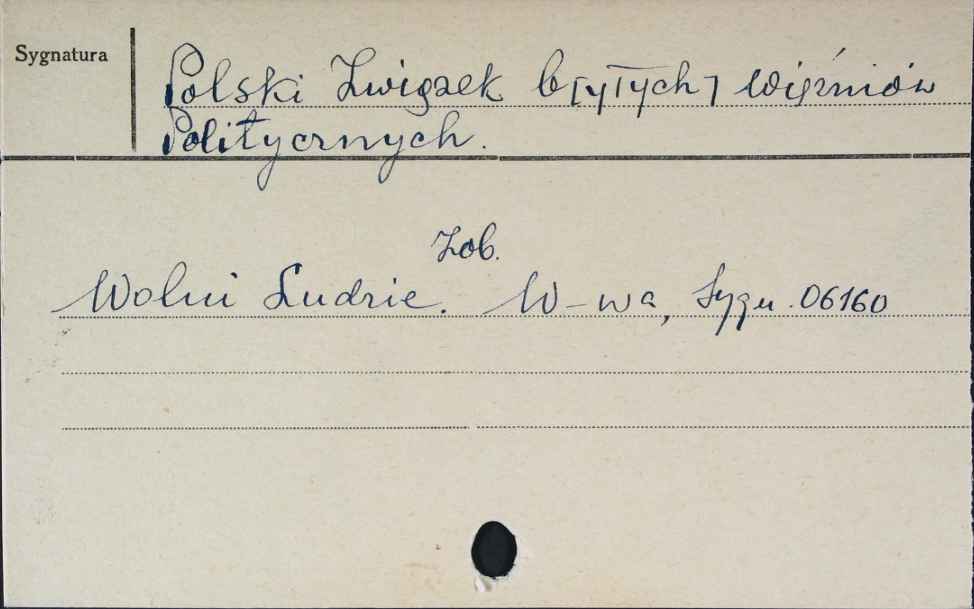 Sygnatura
Polski Związek b[yłych] Więźniów
Politycznych.
Zob.
Wolni Ludzie. W-wa, Sygn. 06160